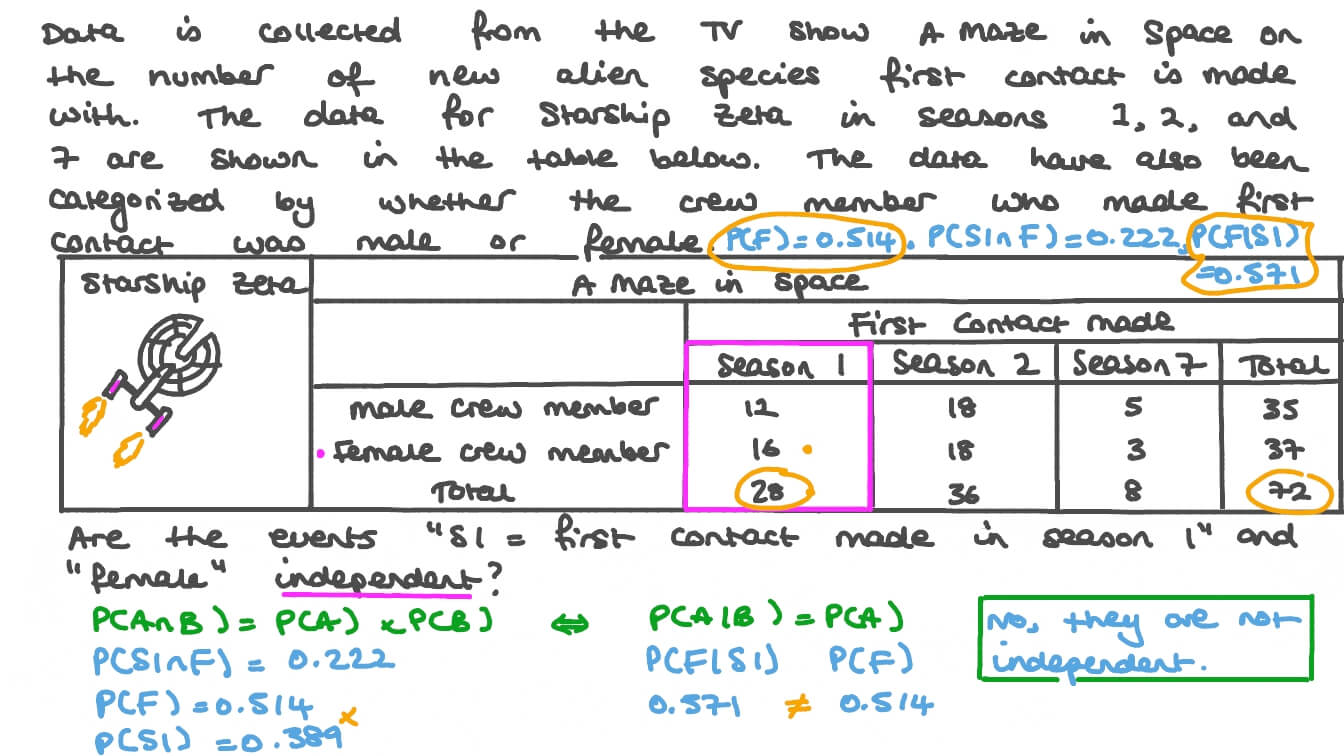 Data is collected from the TV show A Maze in Space on
the number of new alien species first contact is made
with. The data for Starship Zeta in seasons 1, 2, and
7 are shown in the table below. The data have also been
categorized by whether the crew member who made first
contact was male or female. P(F)=0.514. P(S1∩F)=0.222, P(F|S1)
=0.571
Starship Zeta A Maze in Space
First Contact made
Season 1 Season 2 Season 7 Total
male crew member 12 18 5 35
Female crew member 16 18 3 37
Total 28 36 8 72
Are the events "S1 = first contact made in season 1" and
"female" independent?
P(A∩B) = P(A) × P(B) ⇔ P(A|B) = P(A)
No, they are not
independent.
P(S1∩F) = 0.222 P(F|S1) P(F)
P(F) = 0.514 × 0.571 ≠ 0.514
P(S1) = 0.389